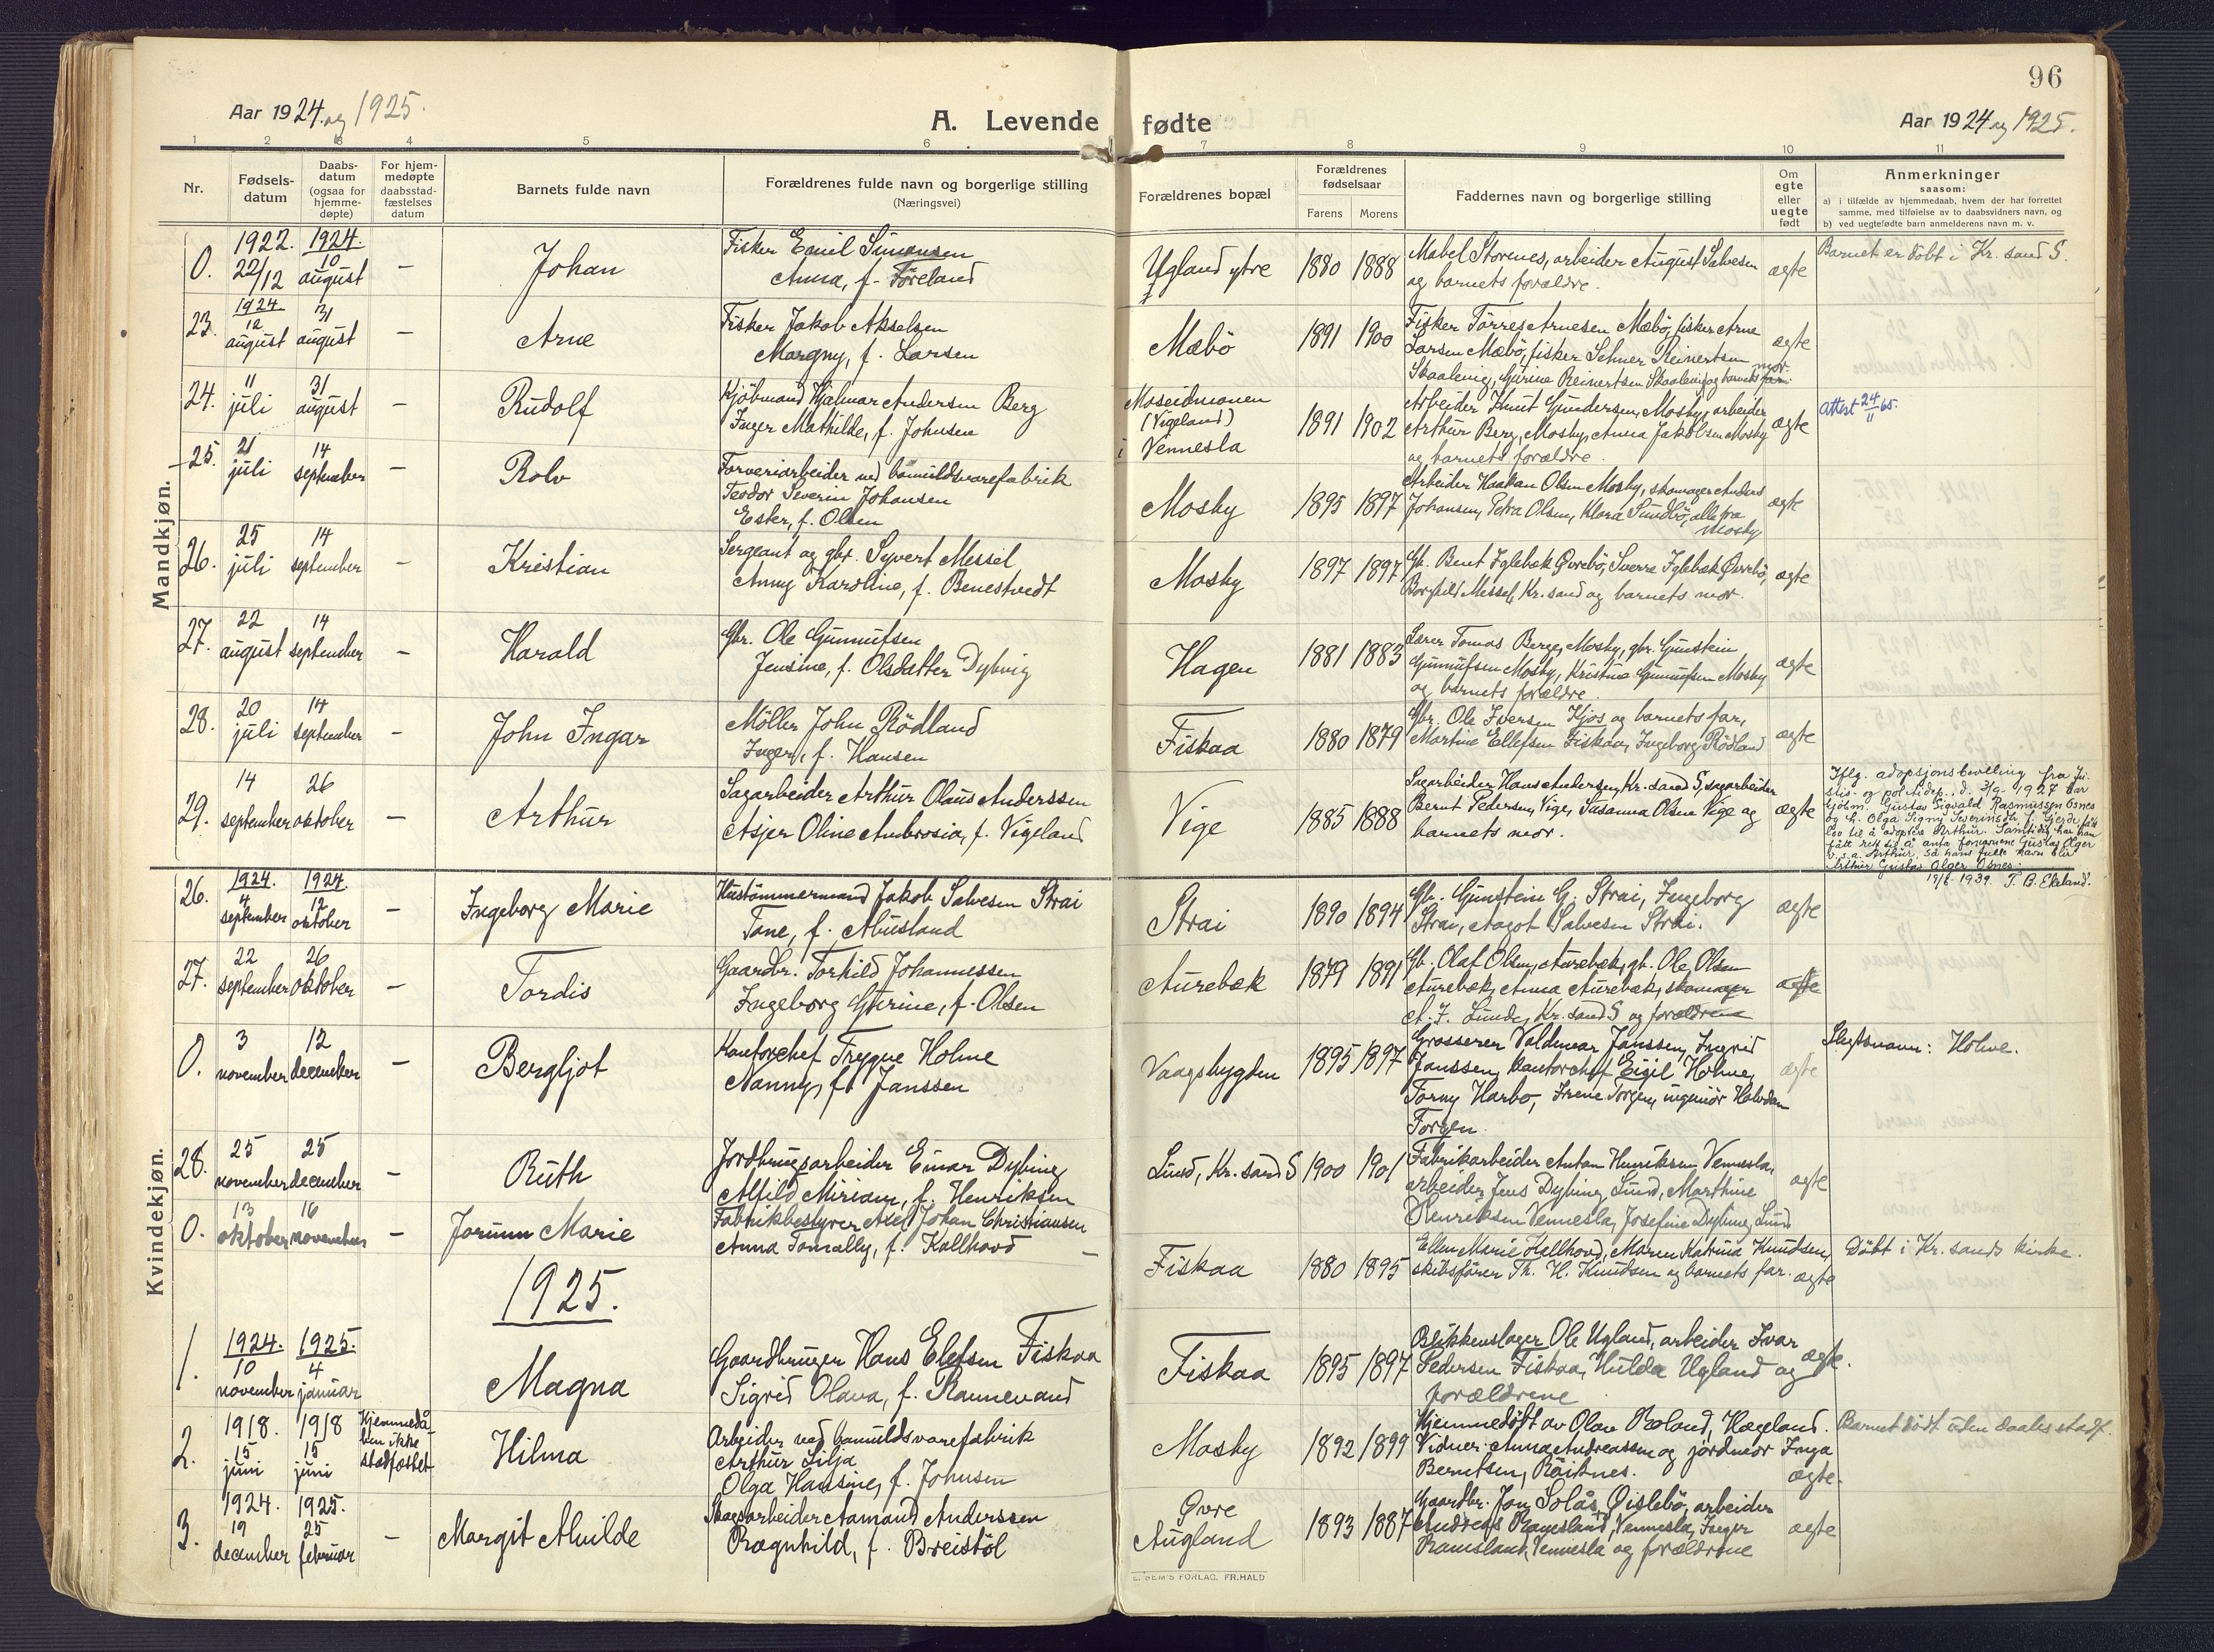 96
Aar 1924 og 1925.
A. Levende fødte
Aar 1924 og 1925.
1 2 3 4 5 6 7 8 9 10 11
Nr.
Fødsels-
datum
Daabs-
datum
(ogsaa for
hjemme-
døpte)
For hjem-
medøpte
daabsstad-
fæstelses
datum
Barnets fulde navn
Forældrenes fulde navn og borgerlige stilling
(Næringsvei)
Forældrenes bopæl
Forældrenes
fødselsaar
Farens Morens
Faddernes navn og borgerlige stilling
Om
egte
eller
uegte
født
Anmerkninger
saasom:
a) i tilfælde av hjemmedaab, hvem der har forrettet
samme, med tilføielse av to daabsvidners navn, og
b) ved uegtefødte barn anmelderens navn m. v.
Mandkjøn.
0.
1922.
22/12
1924.
10
august
–
Johan
Fisker Emil Simonsen
Anna, f. Föreland
Ugland ytre
1880 1888
Mabel Storenes, arbeider August Salvesen
og barnets forældre.
ægte
Barnet er döbt i Kr. sand S.
23.
1924
12
august
31
august
–
Arne
Fisker Jakob Akselsen
Margny, f. Larsen
Mæbö
1891 1900
Fisker Törres Arnesen Mæbö, fisker Arne
Larsen Mæbö, fisker Selmer Reinertsen
Skaalevig, Gurine Reinertsen Skaalevig og barnets mor.
ægte
24.
11
juli
31
august
–
Rudolf
Kjöbmand Hjalmar Andersen Berg
Inger Mathilde, f. Johnsen
Moseidmonen
(Vigeland)
i Vennesla
1891 1902
Arbeider Knut Gundersen, Mosby, arbeider
Arthur Berg, Mosby, Anna Jakobsen Mosby
og barnets forældre.
ægte
Attest 24/11 65.
25.
21
juli
14
september
–
Rolv
Farveriarbeider ved bomuldsvarefabrik
Teodor Severin Johansen
Ester, f. Olsen
Mosby
1895 1897
Arbeider Haakan Olsen Mosby, skomager Anders
Johansen, Petra Olsen, Klara Sundbö, alle fra
Mosby
ægte
26.
25
juli
14
september
–
Kristian
Sergeant og gbr. Syvert Messel
Anny Karoline, f. Benestvedt
Mosby
1897 1897
Gb. Bent Iglebæk Øvrebö, Sverre Iglebæk Øvrebö,
Borghild Messel, Kr. sand og barnets mor.
ægte
27.
22
august
14
september
–
Harald
Gbr. Ole Gunnufsen
Jensine, f. Olsdatter Dybvig
Hagen
1881 1883
Lærer Tomas Berge, Mosby, gbr. Gunstein
Gunnufsen Mosby, Kristine Gunnufsen Mosby
og barnets forældre.
ægte
28.
20
juli
14
september
–
John Ingar
Möller John Rödland
Inger, f. Hansen
Fiskaa
1880 1879
Gbr. Ole Iversen Kjos og barnets far,
Martine Ellefsen Fiskaa, Ingeborg Rödland
ægte
29.
14
september
26
oktober
–
Arthur
Sagarbeider Arthur Olaus Anderssen
Asjer Oline Ambrosia, f. Vigeland
Vige
1885 1888
Sagarbeider Hans Andersen, Kr. sand S, sagarbeider
Bernt Pedersen, Vige, Susanna Olsen Vige og
barnets mor.
ægte
Iflg. adopsjonsbevilling fra Ju-
stis- og politidep. d. 3/9 1927 har
kjöbm. Gustav Sigvald Rasmussen Osnes
og h. Olga Signy Severinsdtr. f. Gjerde, fått
lov til å adoptere Arthur. Samtidig har han
fått rett til å anta fornavnene Gustav Olger
v. s. a. Arthur, så hans fulle navn blir
Arthur Gustav Olger Osnes.
19/6 1939. T. B. Ekeland.
Kvindekjøn.
26.
1924.
4
september
1924.
12
oktober
–
Ingeborg Marie
Hustömmermand Jakob Salvesen Strai
Tone, f. Aabusland
Strai
1890 1894
Gb. Gunstein G. Strai, Ingeborg
Strai, Aagot Salvesen Strai.
ægte
27.
22
september
26
oktober
–
Tordis
Gaardbr. Torkild Johannessen
Ingeborg Gurine, f. Olsen
Aurebæk
1879 1891
Gb. Olaf Olsen, Aurebæk, gb. Ole Olsen
Aurebæk, Anna Aurebæk, skomager
A. F. Lunde, Kr. sand S og forældrene
ægte
0.
3
november
12
december
–
Bergljot
Kontorchef Trygve Holme
Nanny, f. Janssen
Vaagsbygden
1895 1897
Grosserer Valdemar Janssen, Ingrid
Janssen, kontorchef Eigil Holme,
Torny Harbo, Irene Torgen, ingeniör Halvdan
Torgen.
ægte
Slegtsnavn: Holme.
28.
25
november
25
december
–
Ruth
Jordbrugsarbeider Einar Dybing
Alfild Miriam, f. Henriksen
Lund, Kr. sand S
1900 1901
Fabrikarbeider Anton Henriksen Vennesla,
arbeider Jens Dybing, Lund, Marthine
Henriksen Vennesla, Josefine Dybing, Lund
ægte
0.
13
oktober
16
november
–
Jorunn Marie
Fabrikbestyrer Axel Johan Christiansen
Anna Tomally, f. Kallhovd
Fiskaa
1880 1895
Ellen Marie Kallhovd, Maren Katrina Knudsen,
skibsförer Th. H. Knudsen og barnets far.
ægte
Döbt i Kr. sands kirke.
1925.
1.
1924.
10
november
1925.
4
januar
Magna
Gaardbruger Hans Elefsen Fiskaa
Sigrid Olava, f. Rannevand
Fiskaa
1895 1897
Blikkenslager Ole Ugland, arbeider Ivar
Pedersen Fiskaa, Hulda Ugland og
forældrene
ægte.
2.
1918.
15
juni
1918
15
juni
Hjemmedå-
ben ikke
stadfæstet
Hilma
Arbeider ved bomuldsvarefabrik
Arthur Silja
Olga Hansine, f. Johnsen
Mosby
1892 1899
Hjemmedöbt av Olav Roland, Hægeland.
Vidner: Anna Andreassen og jordmor Inga
Berntsen, Röiknes.
ægte.
Barnet dödt uten daabsstadf.
3.
1924.
19
december
1925.
25
februar
–
Margit Alvilde
Skogsarbeider Aamund Anderssen
Ragnhild, f. Breistöl
Øvre
Augland
1893 1887
Gaardbr. Jon Solås, Øislebö, arbeider
Andreas Ramesland, Vennesla, Inger
Ramsland, Vennesla og forældrene
ægte
E. SEM'S FORLAG. FR.HALD